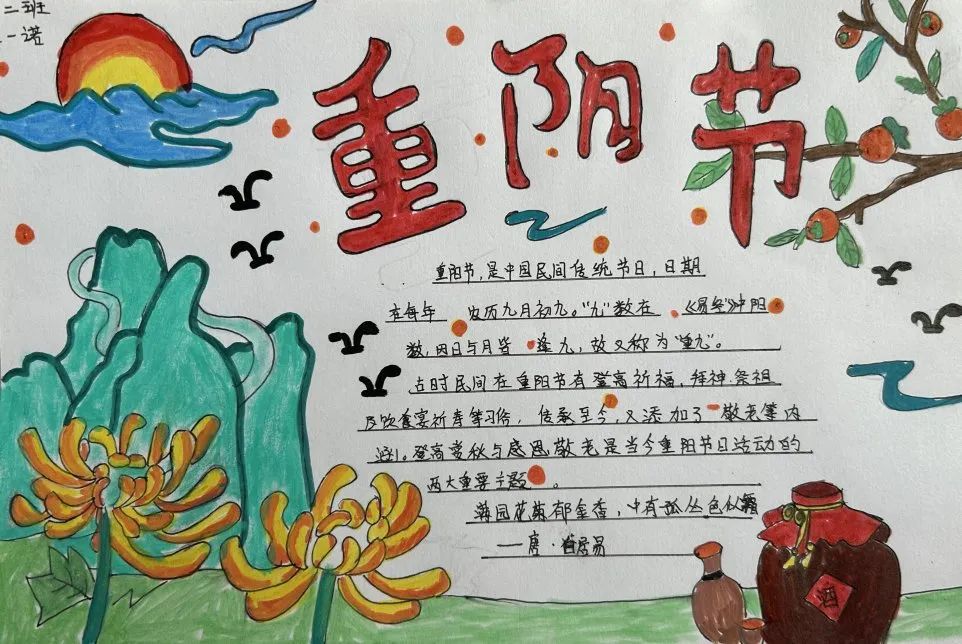 二班
一诺
重阳节
重阳节,是中国民间传统节日,日期
在每年 农历九月初九。"九"数在 《易经》中阳
数,因日与月皆 逢九,故又称为"重九"。
古时民间在重阳节有登高祈福,拜神祭祖
及饮食宴祈寿等习俗, 传承至今,又添加了 敬老等内
涵。登高赏秋与感恩敬老是当今重阳节日活动的
两大重要主题 。
满园花菊郁金香,中有孤丛色似霜
——唐·白居易
酒